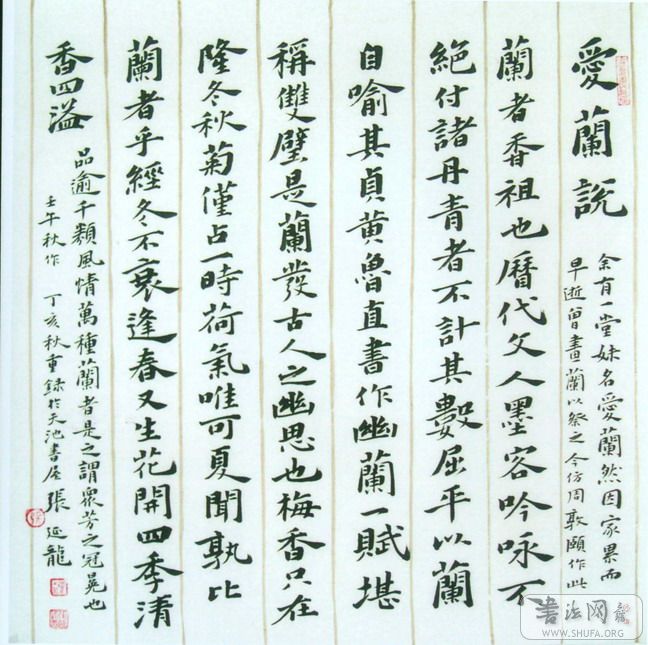 愛蘭說
余有一堂妹名愛蘭然因家累而
早逝曾畫蘭以祭之今仿周敦頤作此
蘭者香祖也曆代文人墨客吟咏不
絕付諸丹青者不計其數屈平以蘭
自喻其貞黃魯直書作幽蘭一賦堪
稱雙璧是蘭發古人之幽思也梅香只在
隆冬秋菊僅占一時荷氣唯可夏聞孰比
蘭者乎經冬不衰逢春又生花開四季清
香四溢
品逾千類風情萬種蘭者是之謂眾芳之冠冕也
壬午秋作 丁亥秋重錄於天池書屋張延龍
書法网
WWW.SHUFA.ORG